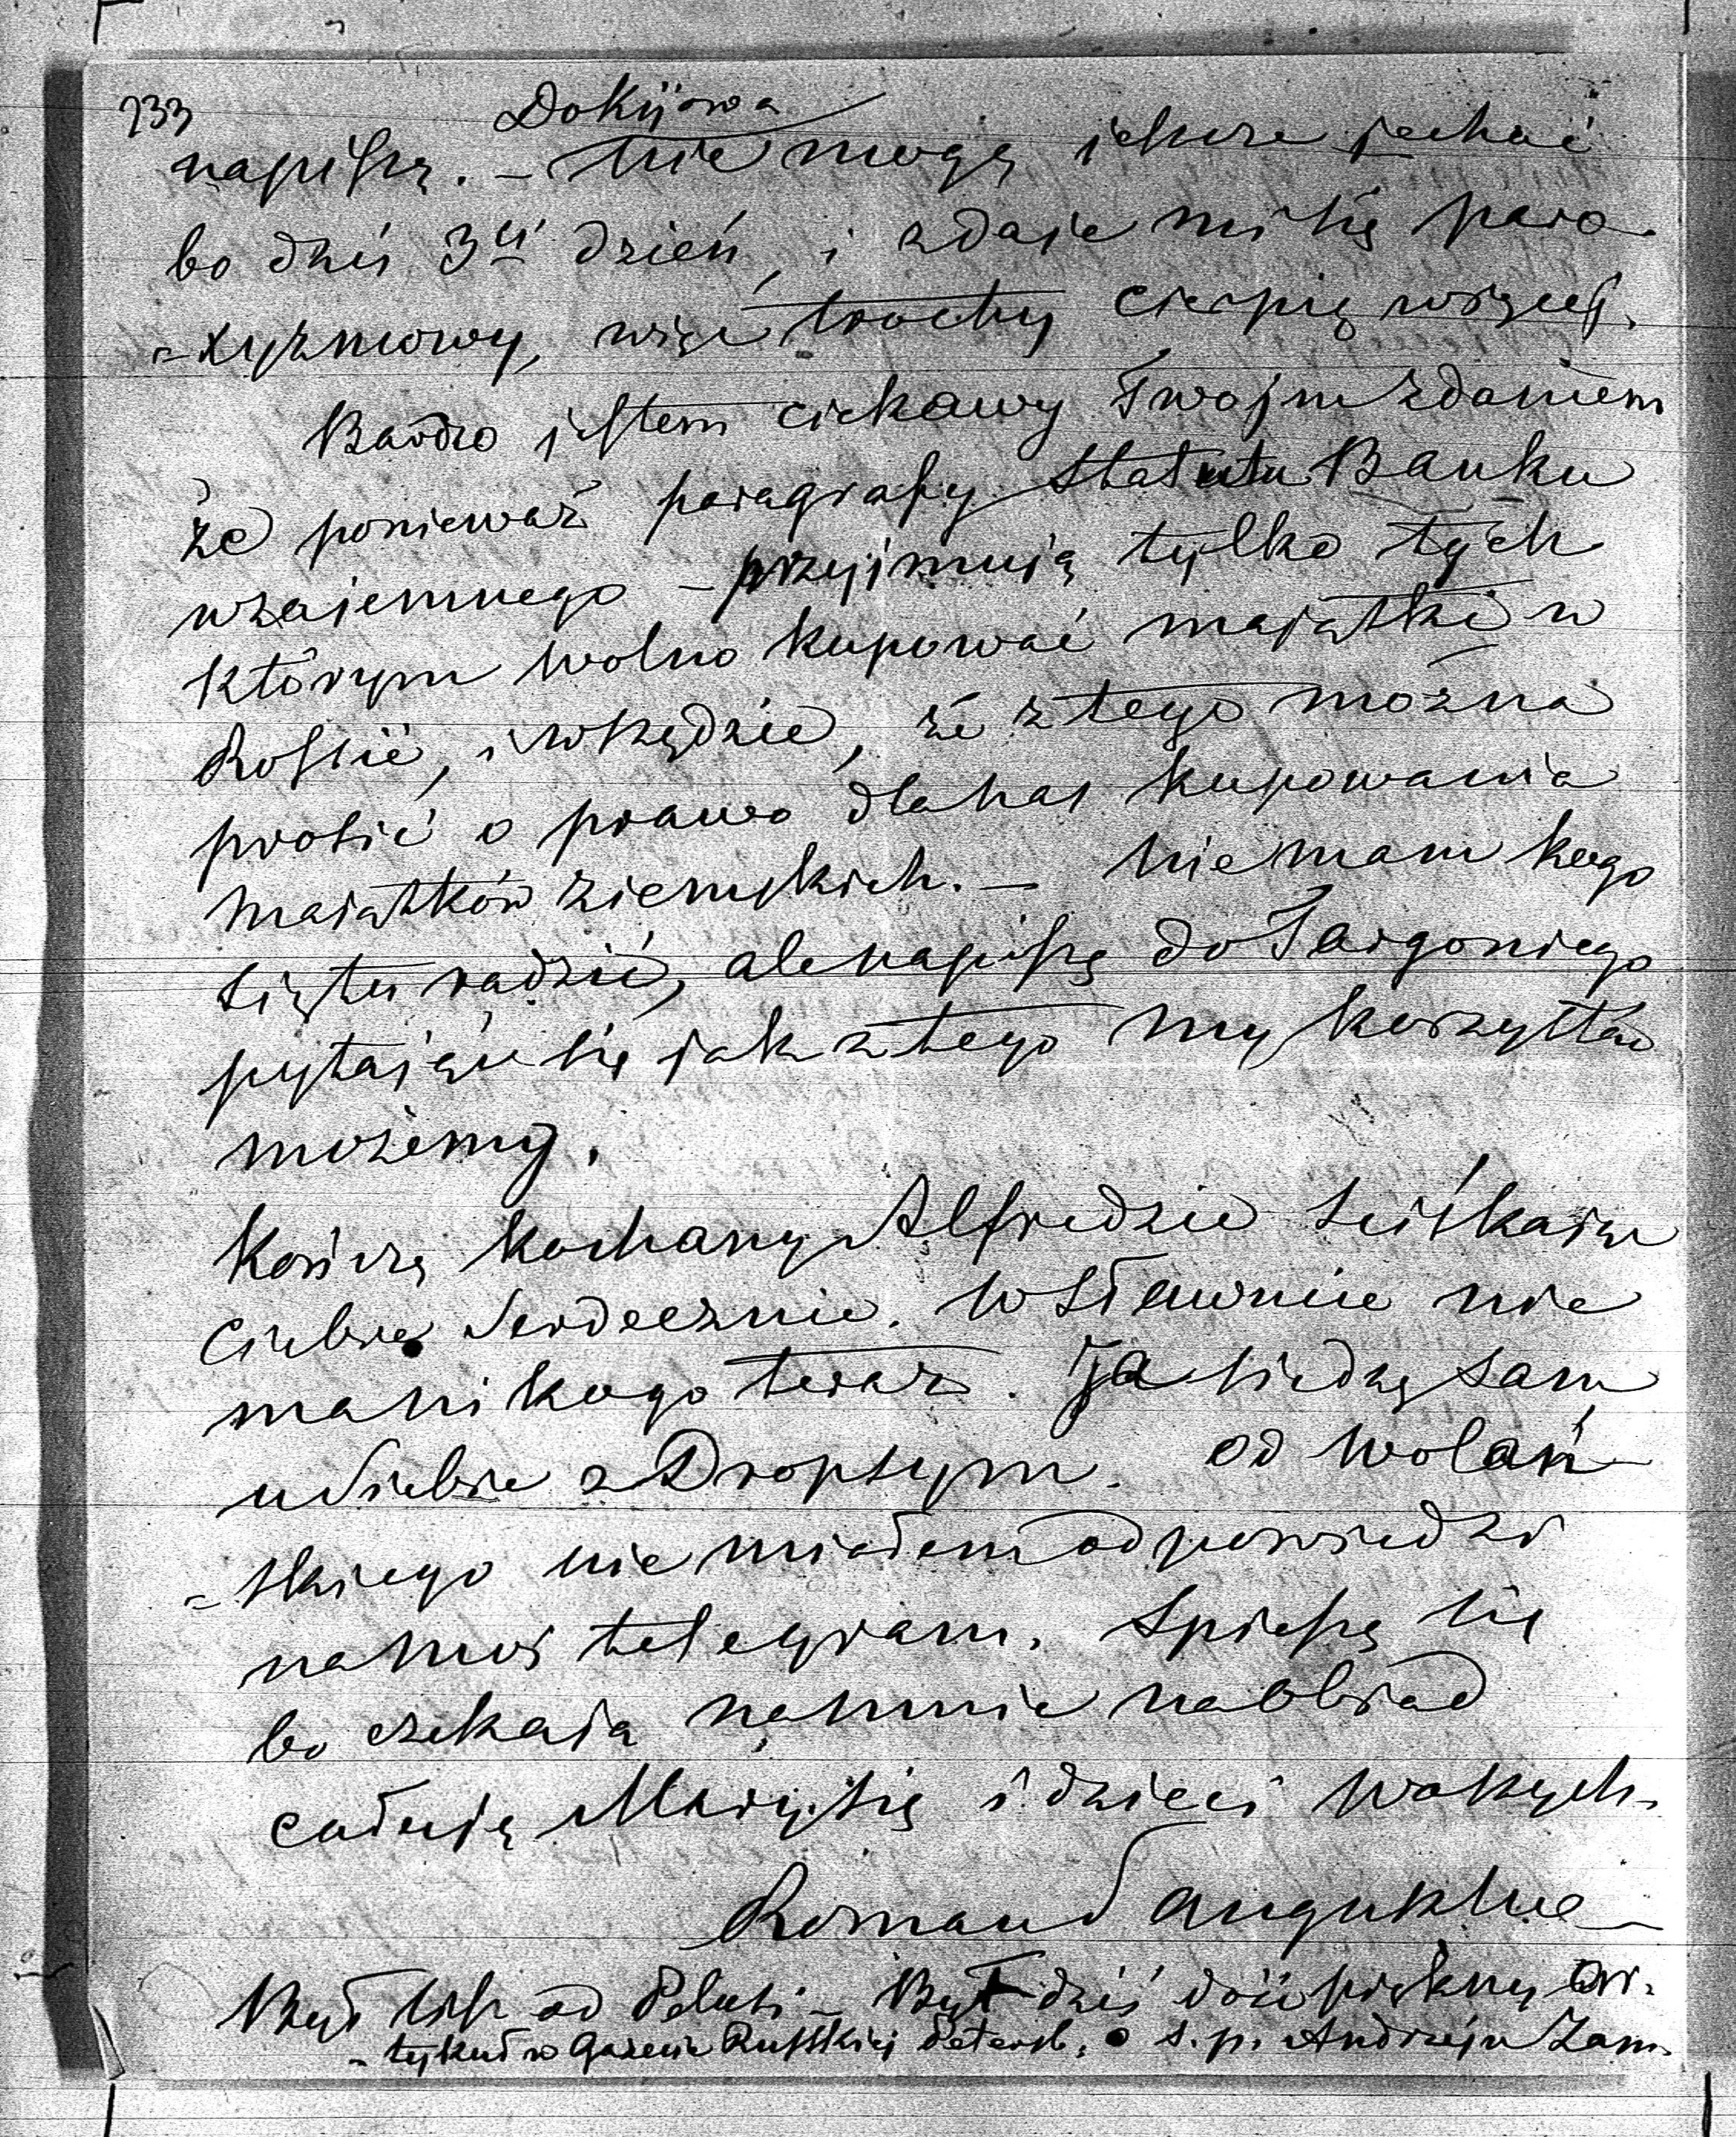 233
Do Kijowa
napiszę. – nie mogę jeszcze jechać
bo dziś 3ci dzień, i zdaje mi się paro
=xyzmowy, więc trochy cierpię więcej.
Bardzo jestem ciekawy Twojem zdaniem
że ponieważ paragrafy Statutu Banku
wzajemnego – przyjmują tylko tych
którym wolno kupować majątki w
Rossie, i wszędzie, że z tego można
prosić o prawo dla nas kupowania
majątków ziemskich. – nie mam kogo
się tu radzić, ale napiszę do Targoniego
pytając się jak z tego my korzystać
możemy.
Kończę kochany Alfredzie ściskając
Ciebie serdecznie. w Sławucie nie
ma nikogo teraz. Ja siedzę sam
u siebie z Dropsym. od Wolań
=skiego nie miałem odpowiedzi
na mój telegram. Spieszę się
bo czekają na mnie na obiad
całuję Marysię i dzieci Waszych.
Roman Sanguszko
Był list od Poluti – Był dziś dość piękny ar.
– tykuł w Gazecie Russkiej Petersb. o ś. p. Andrzeju Zam.